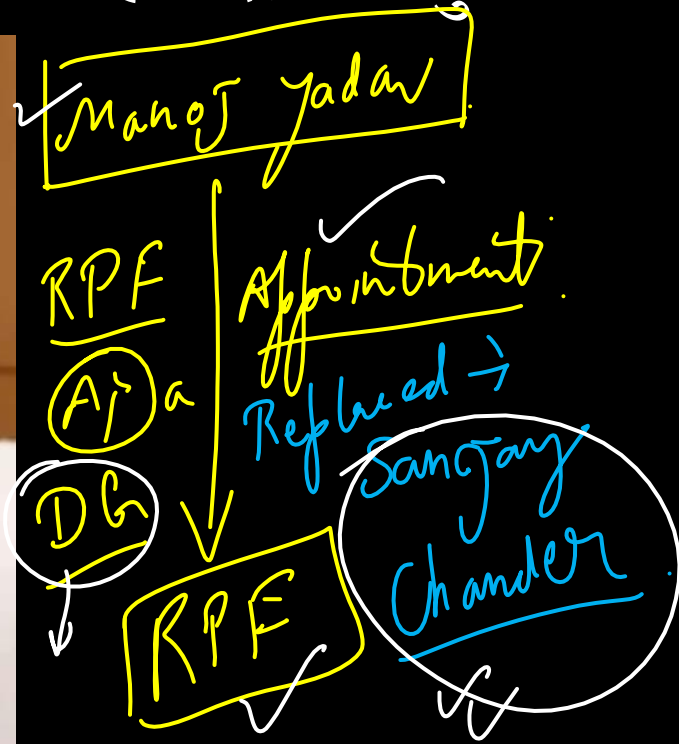 Manoj Yadav
RPF
Appointment.
Aja
Replaced →
DG
Sanjay
Chander
RPF